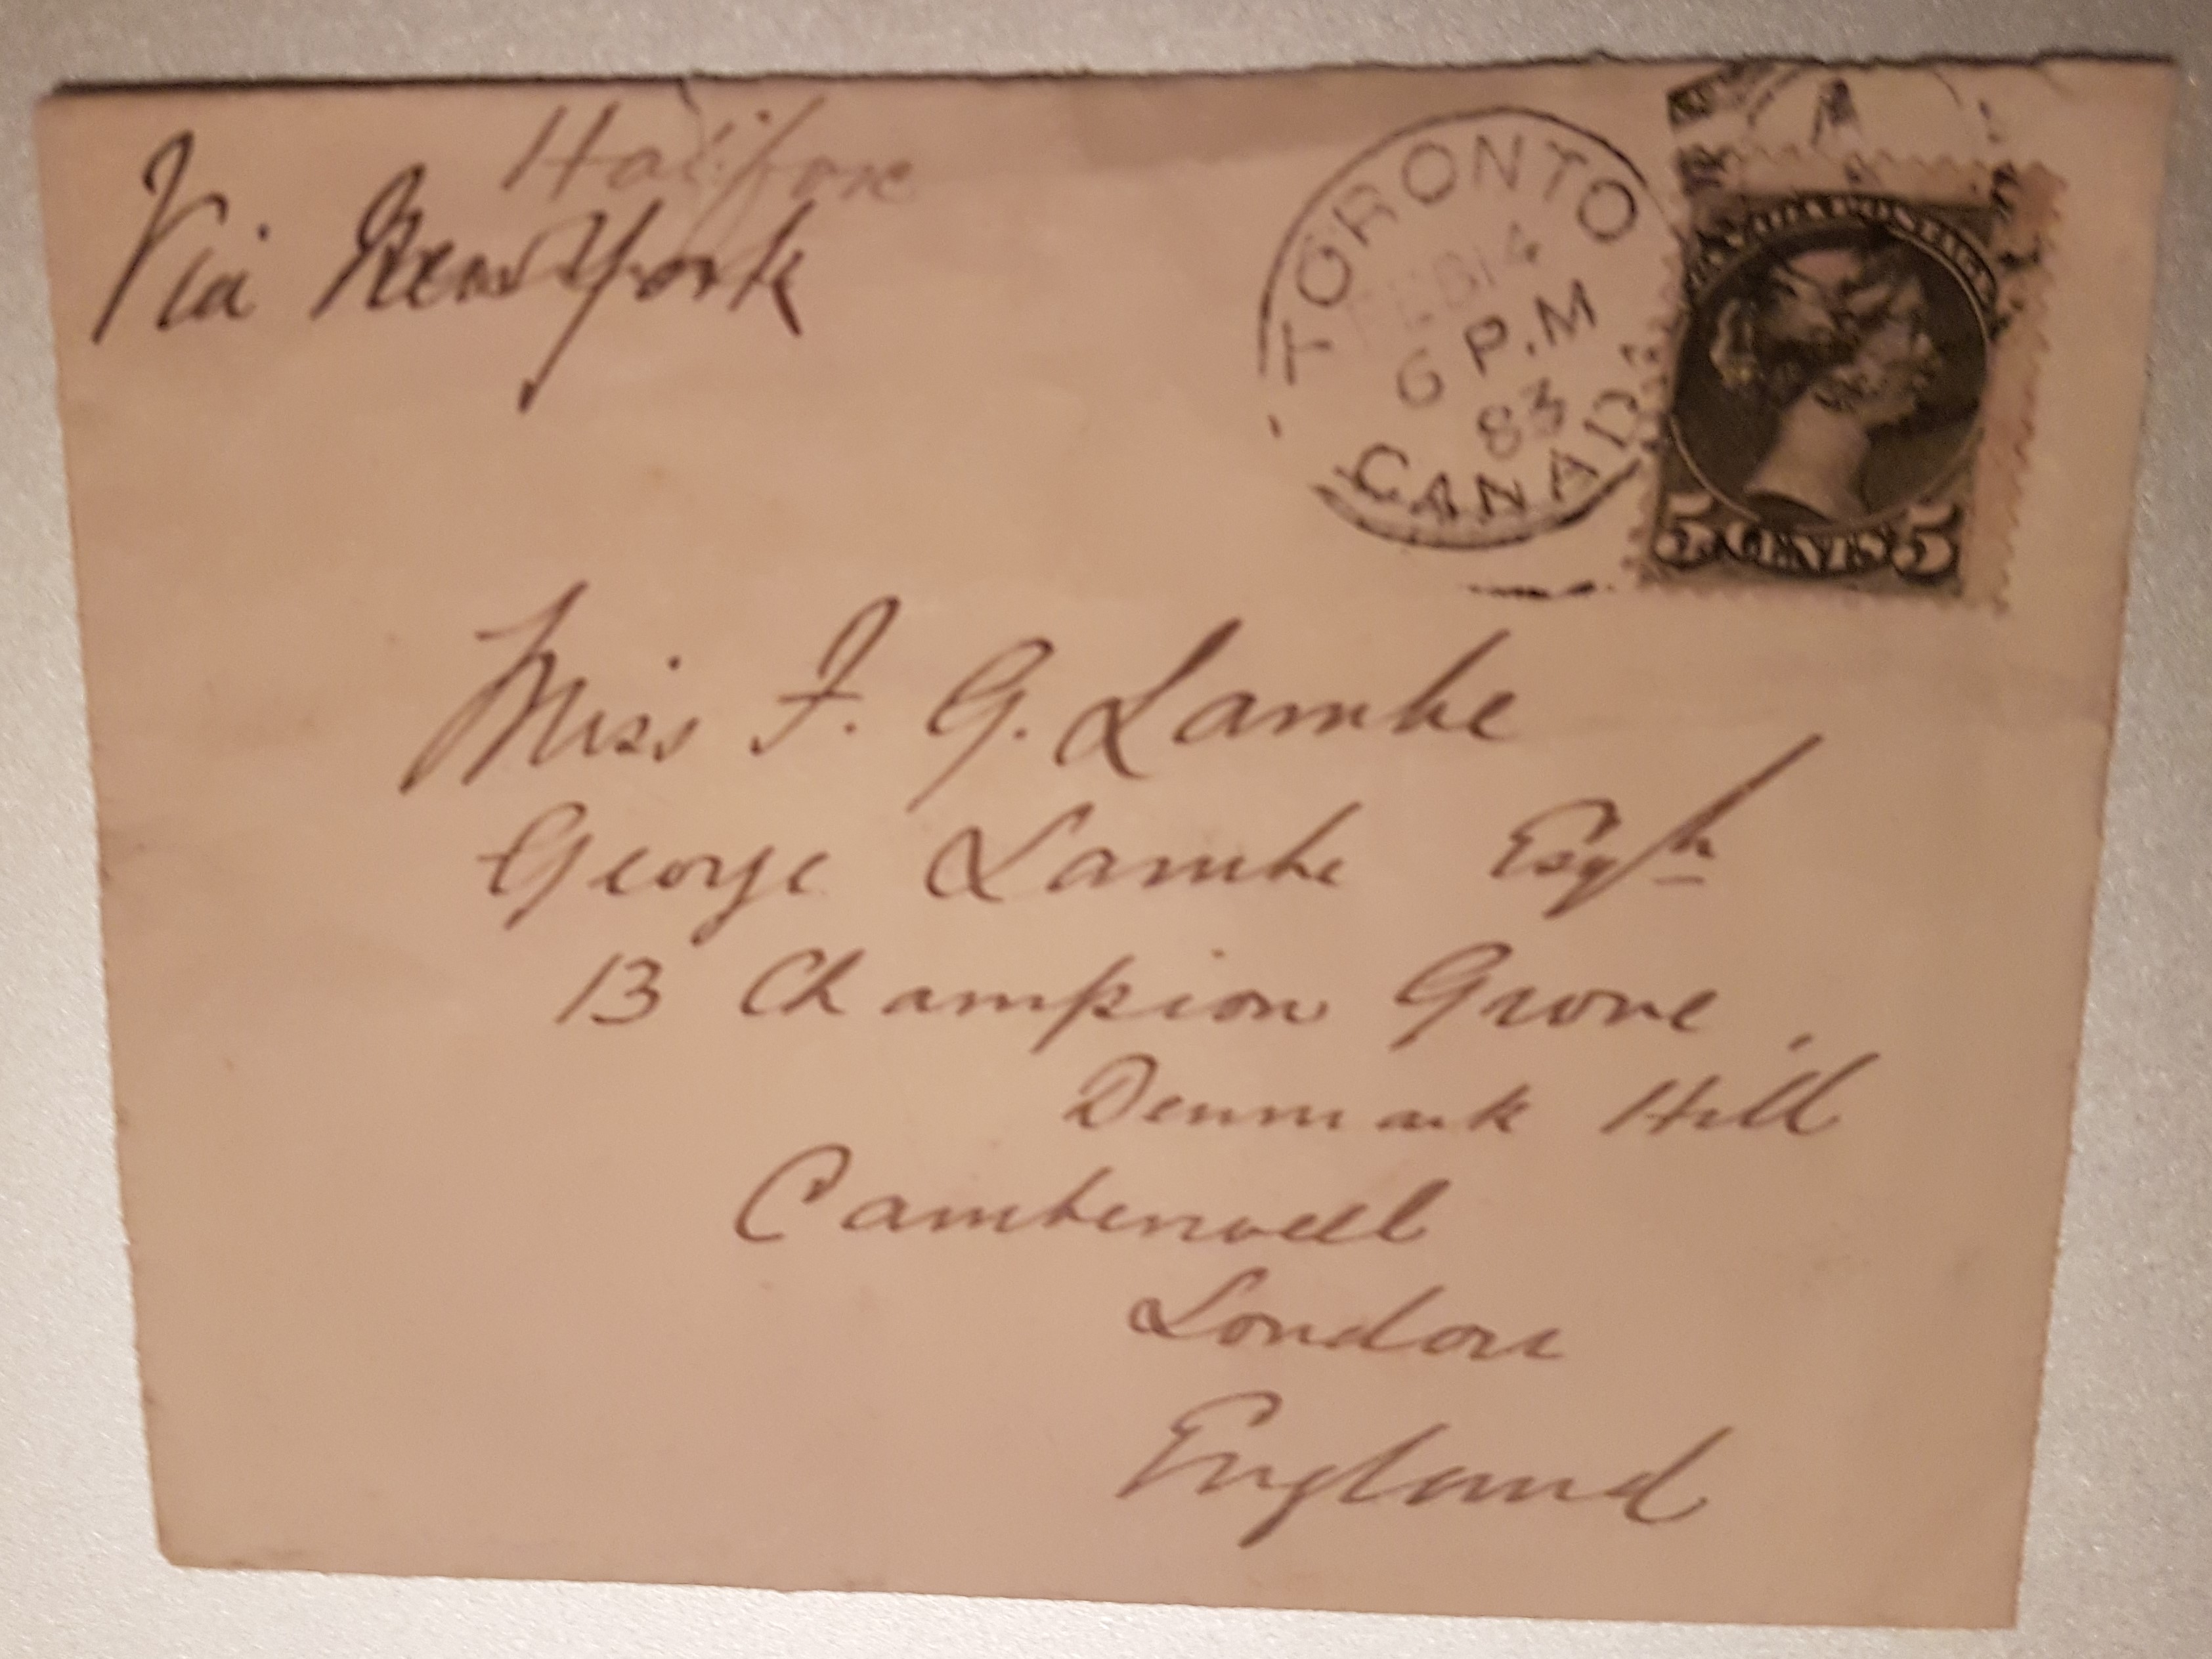 Halifax
Via New York
TORONTO
FEB 14
6 P.M
83
CANADA
CANADA POSTAGE
5 CENTS 5
Miss F. G. Lambe
George Lambe Esqr
13 Champion Grove,
Denmark Hill
Camberwell
London
England